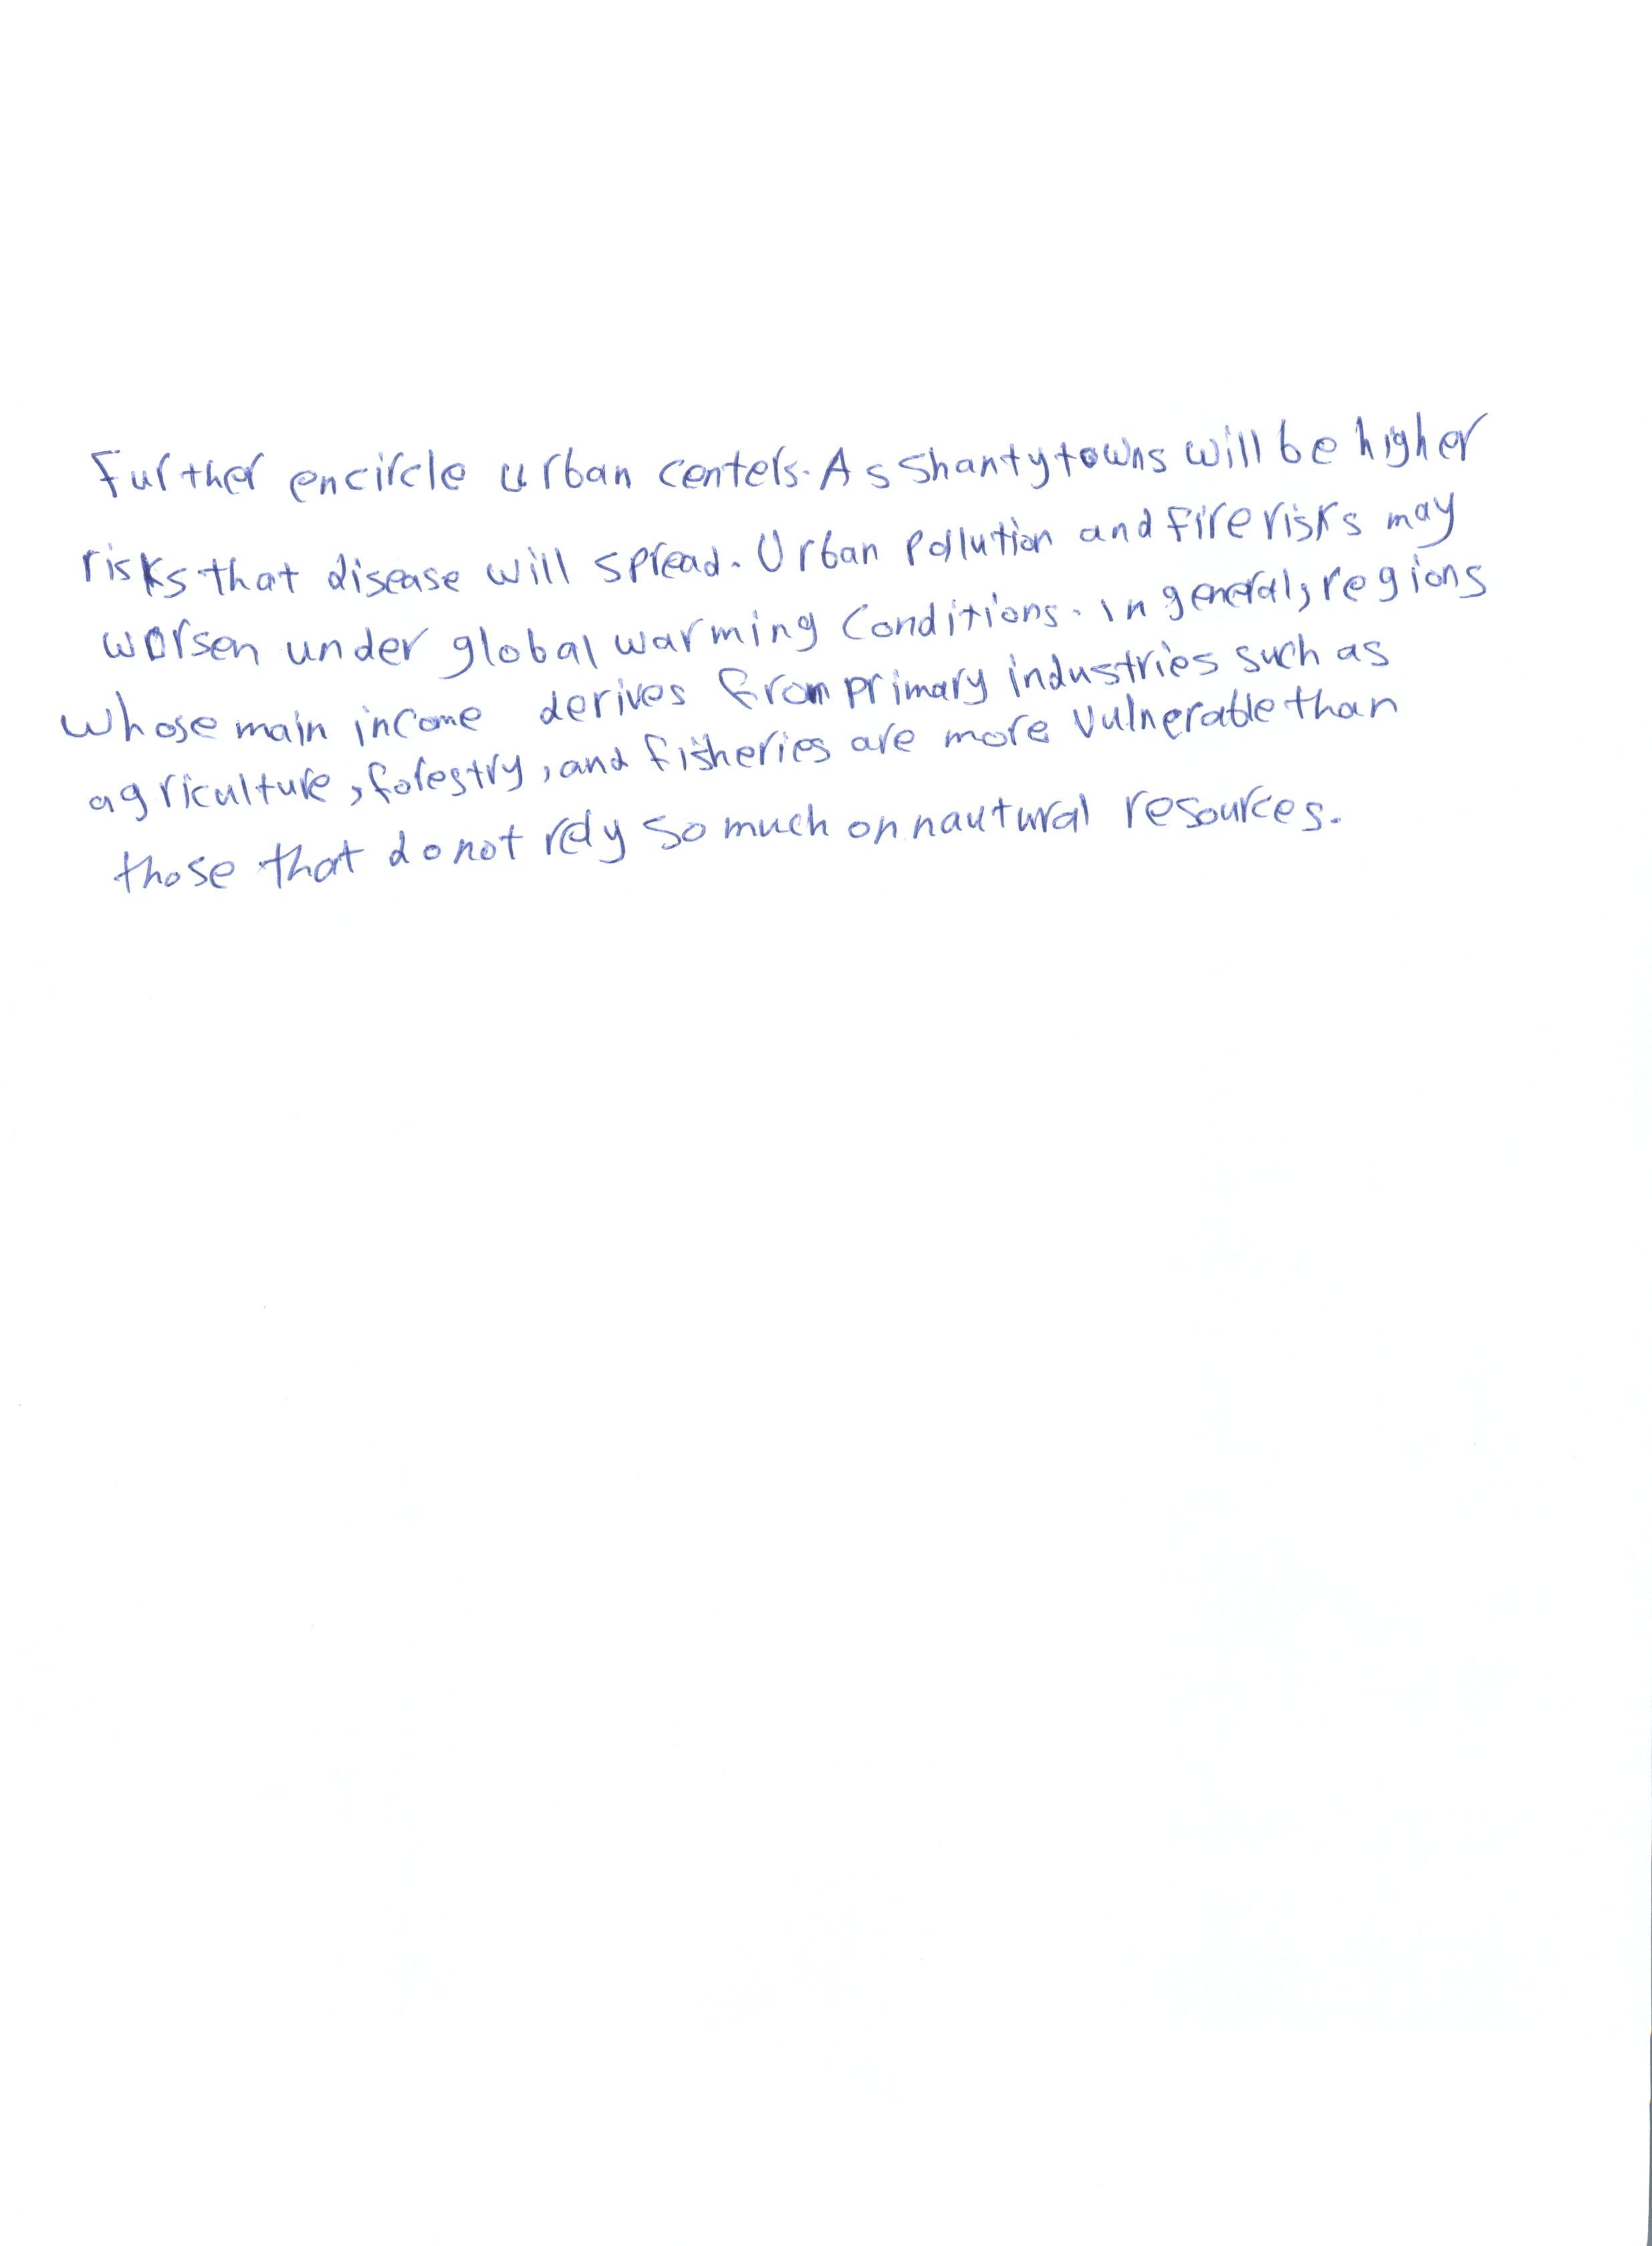 Further encircle urban centers. As Shantytowns will be higher
risks that disease will spread. Urban Pollution and fire risks may
worsen under global warming Conditions. In general, regions
whose main income derives from primary industries such as
agriculture, forestry, and fisheries are more vulnerable than
those that do not rely so much on nautural resources.